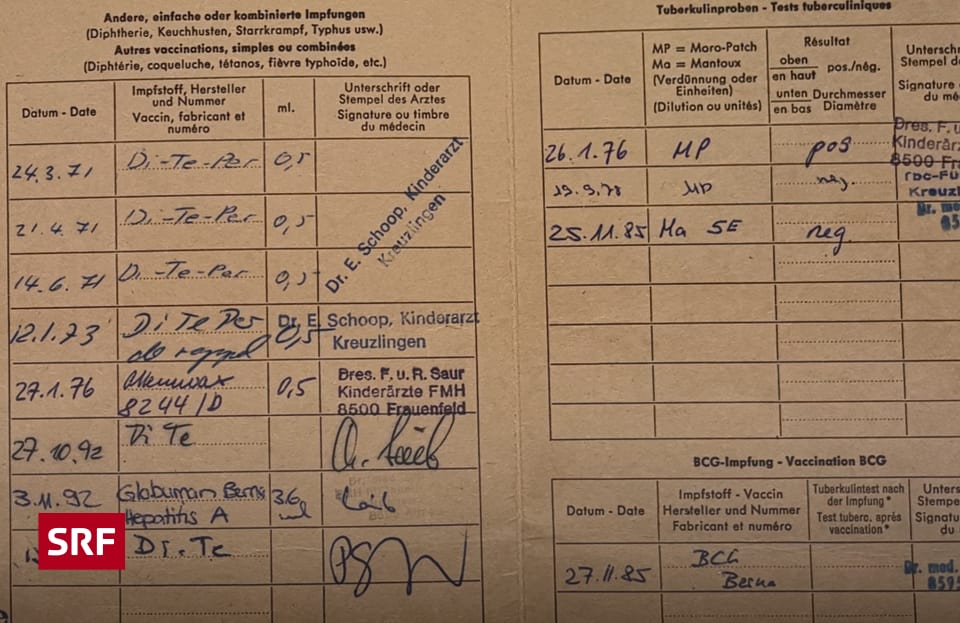 Andere, einfache oder kombinierte Impfungen
(Diphtherie, Keuchhusten, Starrkrampf, Typhus usw.)
Autres vaccinations, simples ou combinées
(Diphtérie, coqueluche, tétanos, fièvre typhoïde, etc.)
Datum - Date
Impfstoff, Hersteller
und Nummer
Vaccin, fabricant et
numéro
ml.
Unterschrift oder
Stempel des Arztes
Signature ou timbre
du médecin
24.3.71 Di-Te-Per 0,5
21.4.71 Di-Te-Per 0,5
14.6.71 Di-Te-Per 0,5
Dr. E. Schoop, Kinderarzt
Kreuzlingen
12.1.73 Di Te Per 0,5
rappel
Dr. E. Schoop, Kinderarzt
Kreuzlingen
27.1.76 0,5
8244/D
Dres. F. u. R. Saur
Kinderärzte FMH
8500 Frauenfeld
27.10.92 Di Te
3.11.92 Globuman Berna 3.6
Hepatitis A ml
Di.Te
SRF
Tuberkulinproben - Tests tuberculiniques
Datum - Date
MP = Moro-Patch
Ma = Mantoux
(Verdünnung oder
Einheiten)
(Dilution ou unités)
Résultat
oben
en haut
pos./nég.
unten
en bas
Durchmesser
Diamètre
Unterschr
Stempel de
Signature
du mé
26.1.76 MP pos
Dres. F. u
Kinderärz
8500 Fra
19.9.78 MP neg.
Kreuzl
25.11.85 Ma 5E neg.
Dr. med.
BCG-Impfung - Vaccination BCG
Datum - Date
Impfstoff - Vaccin
Hersteller und Nummer
Fabricant et numéro
Tuberkulintest nach
der Impfung*
Test tuberc. après
vaccination*
Unters
Stempe
Signatu
du
27.11.85 BCG
Berna
Dr. med.
8595